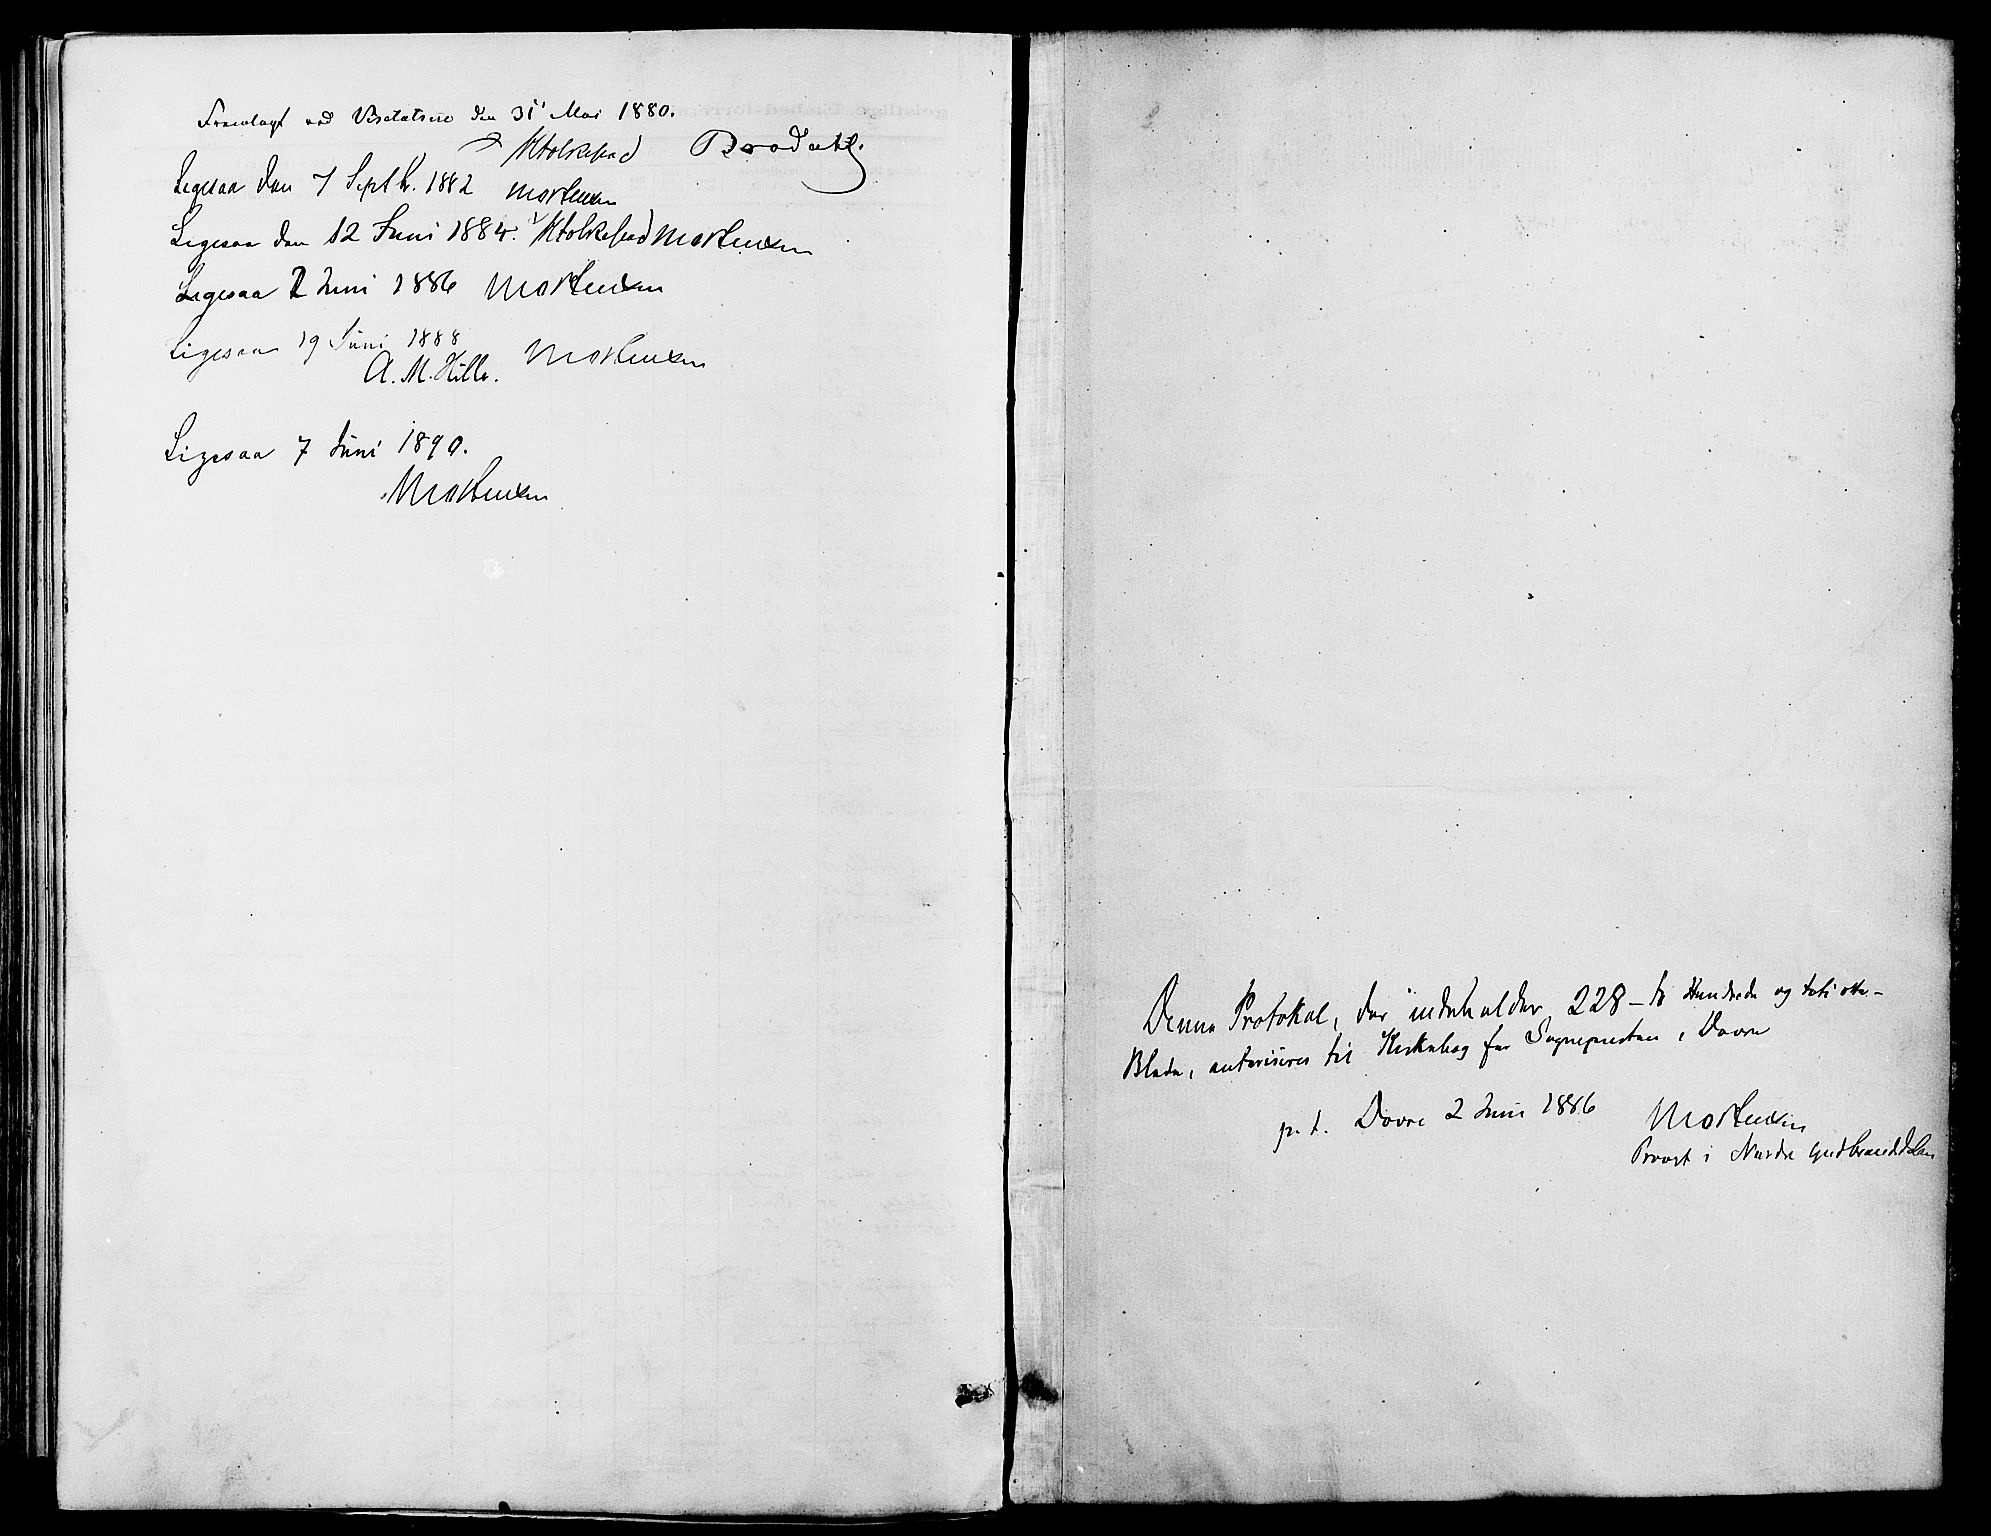 Fremlagt ved Visitatsen den 31' Mai 1880.
KHolkebad Brodahl.
Ligesaa den 7 Septbr. 1882 Mortensen
Ligesaa den 12 Juni 1884. Mortensen
Ligesaa 2 Juni 1886 Mortensen
Ligesaa 19 Juni 1888 Mortensen
A. M. Hille.
Ligesaa 7 Juni 1890.
Mortensen
Denne Protokol, der indeholder 228 – to Hundrede og toti otte –
Blade, autoriseres til Kirkebog for Sognepresten i Dovre
p. t. Dovre 2 Juni 1886 Mortensen
Provst i Nordre Gudbrandsdalen